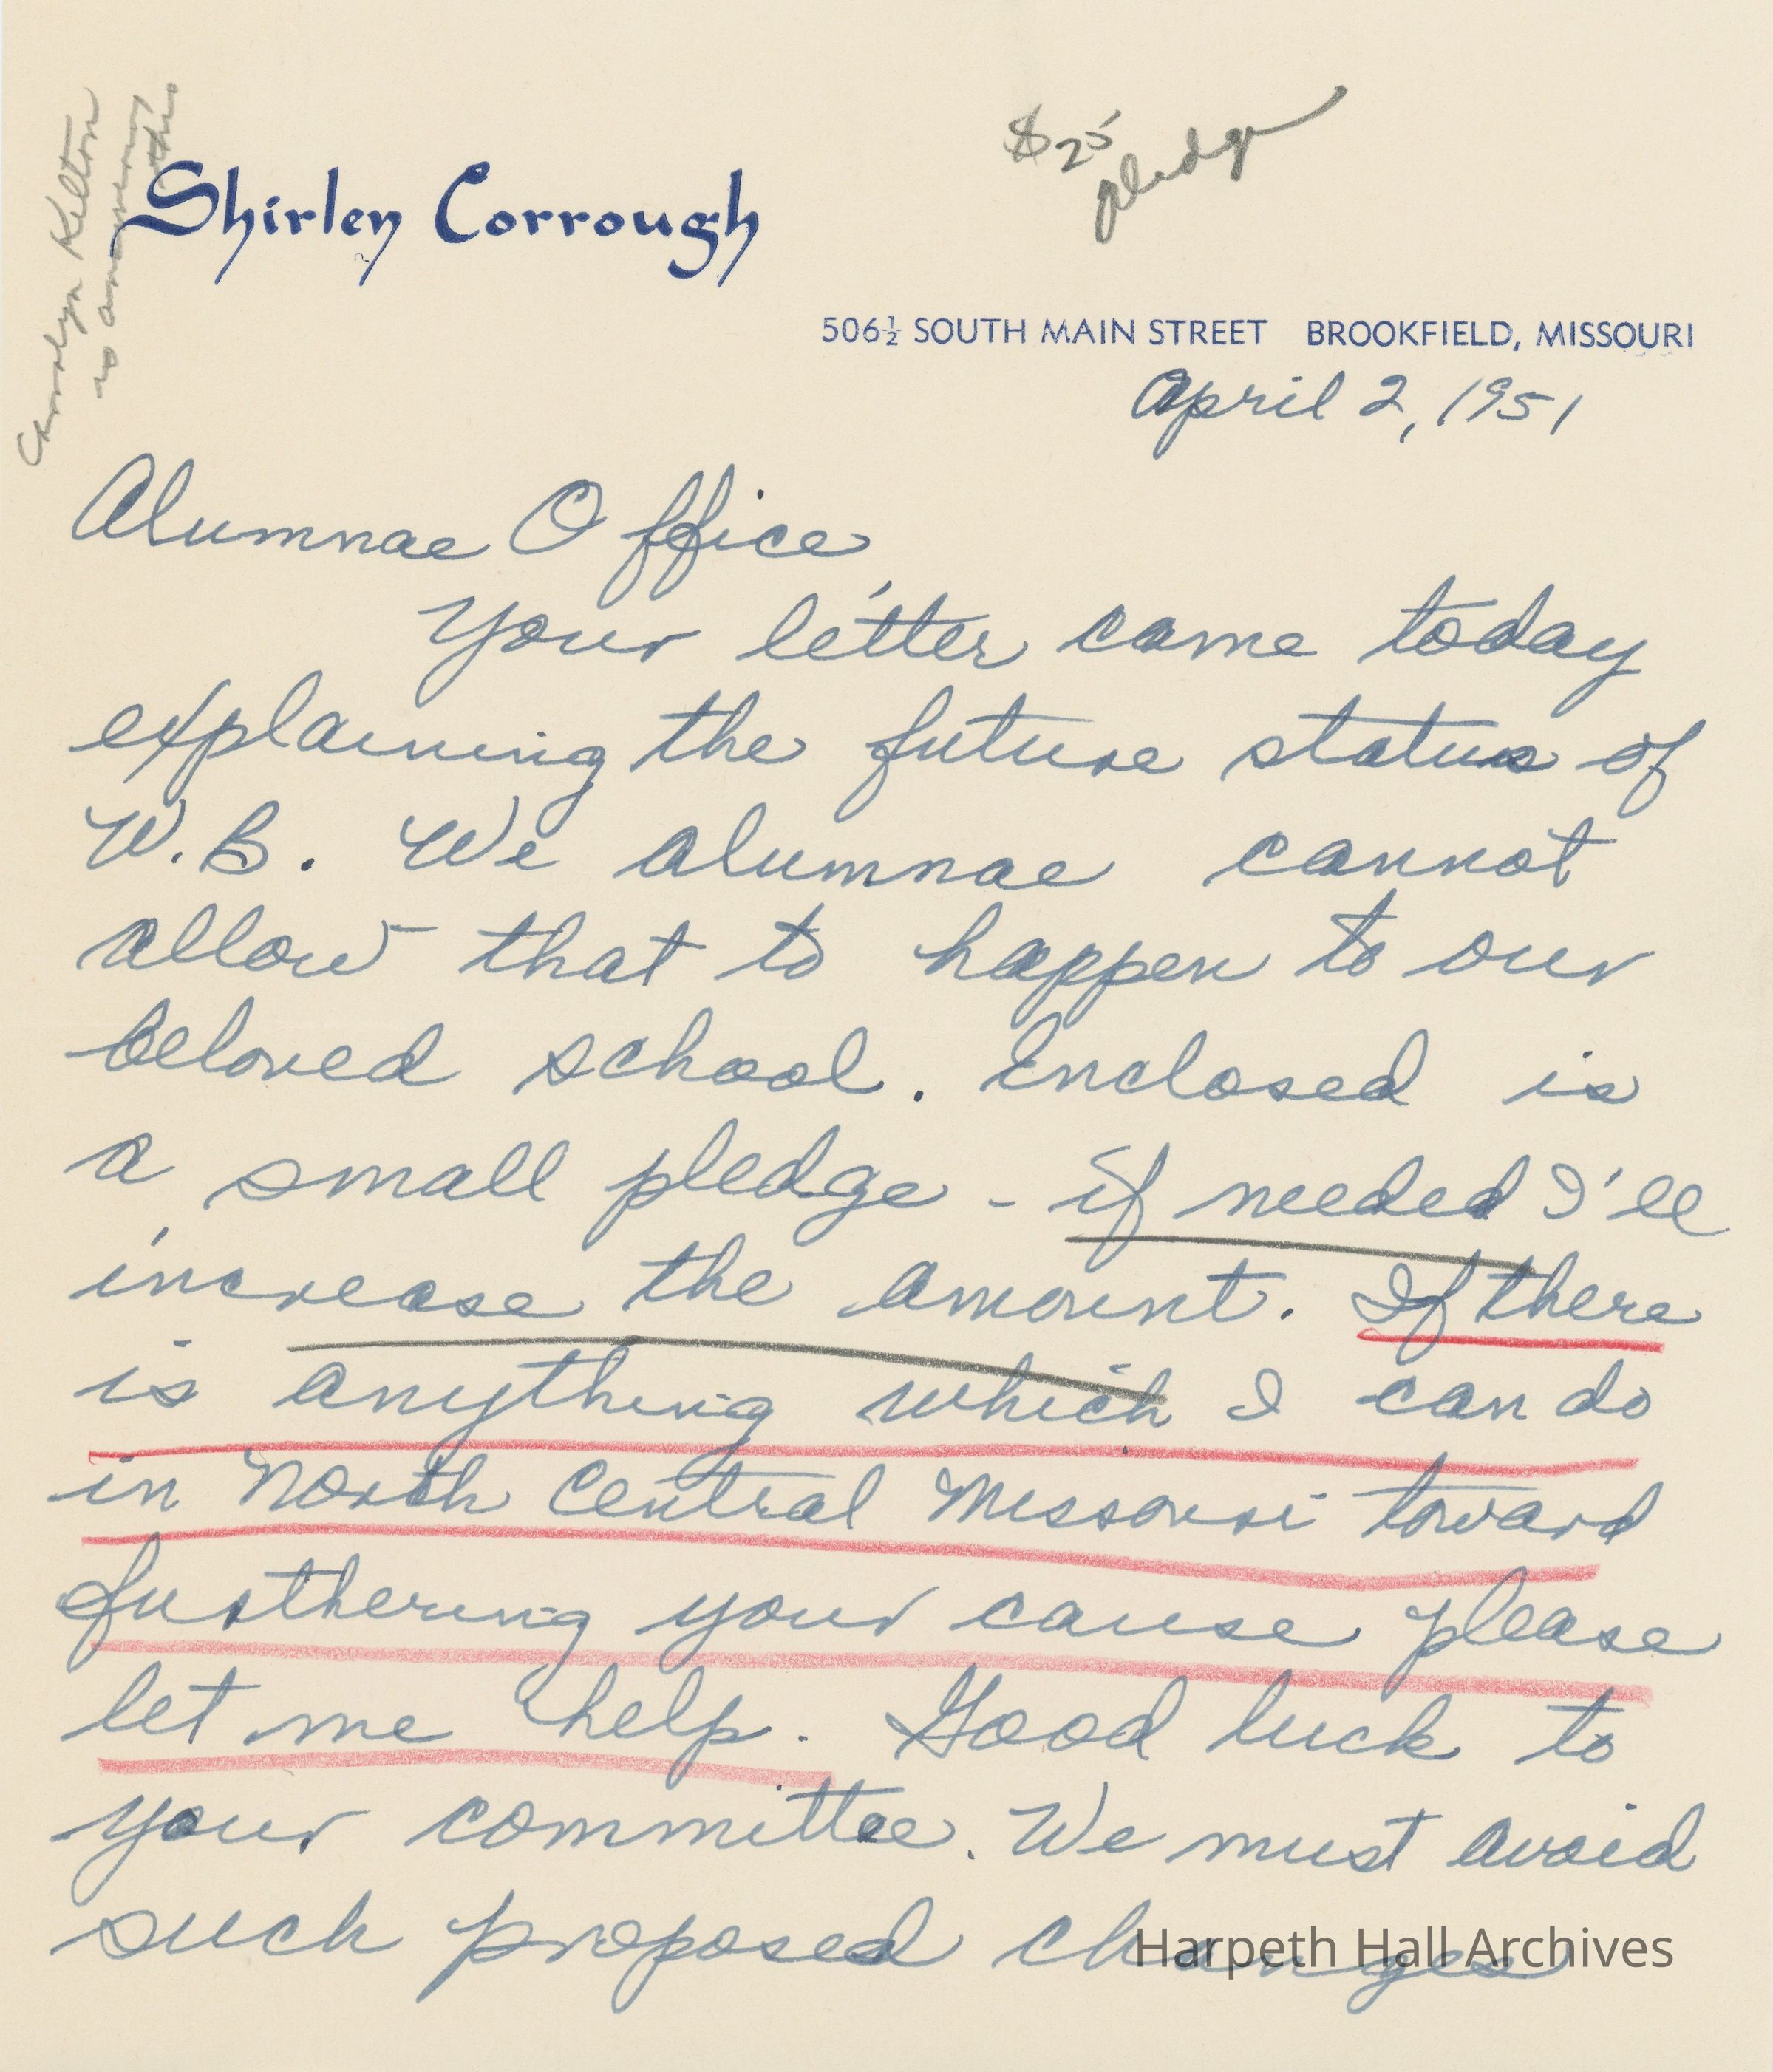 Kelton
is answering
this
$25
pledge
Shirley Corrough
506½ SOUTH MAIN STREET BROOKFIELD, MISSOURI
April 2, 1951
Alumnae Office
Your letter came today
explaining the future status of
W.B. We alumnae cannot
allow that to happen to our
beloved school. Enclosed is
a small pledge - if needed I'll
increase the amount. If there
is anything which I can do
in North Central Missouri toward
furthering your cause please
let me help. Good luck to
your committee. We must avoid
such proposed changes
Harpeth Hall Archives